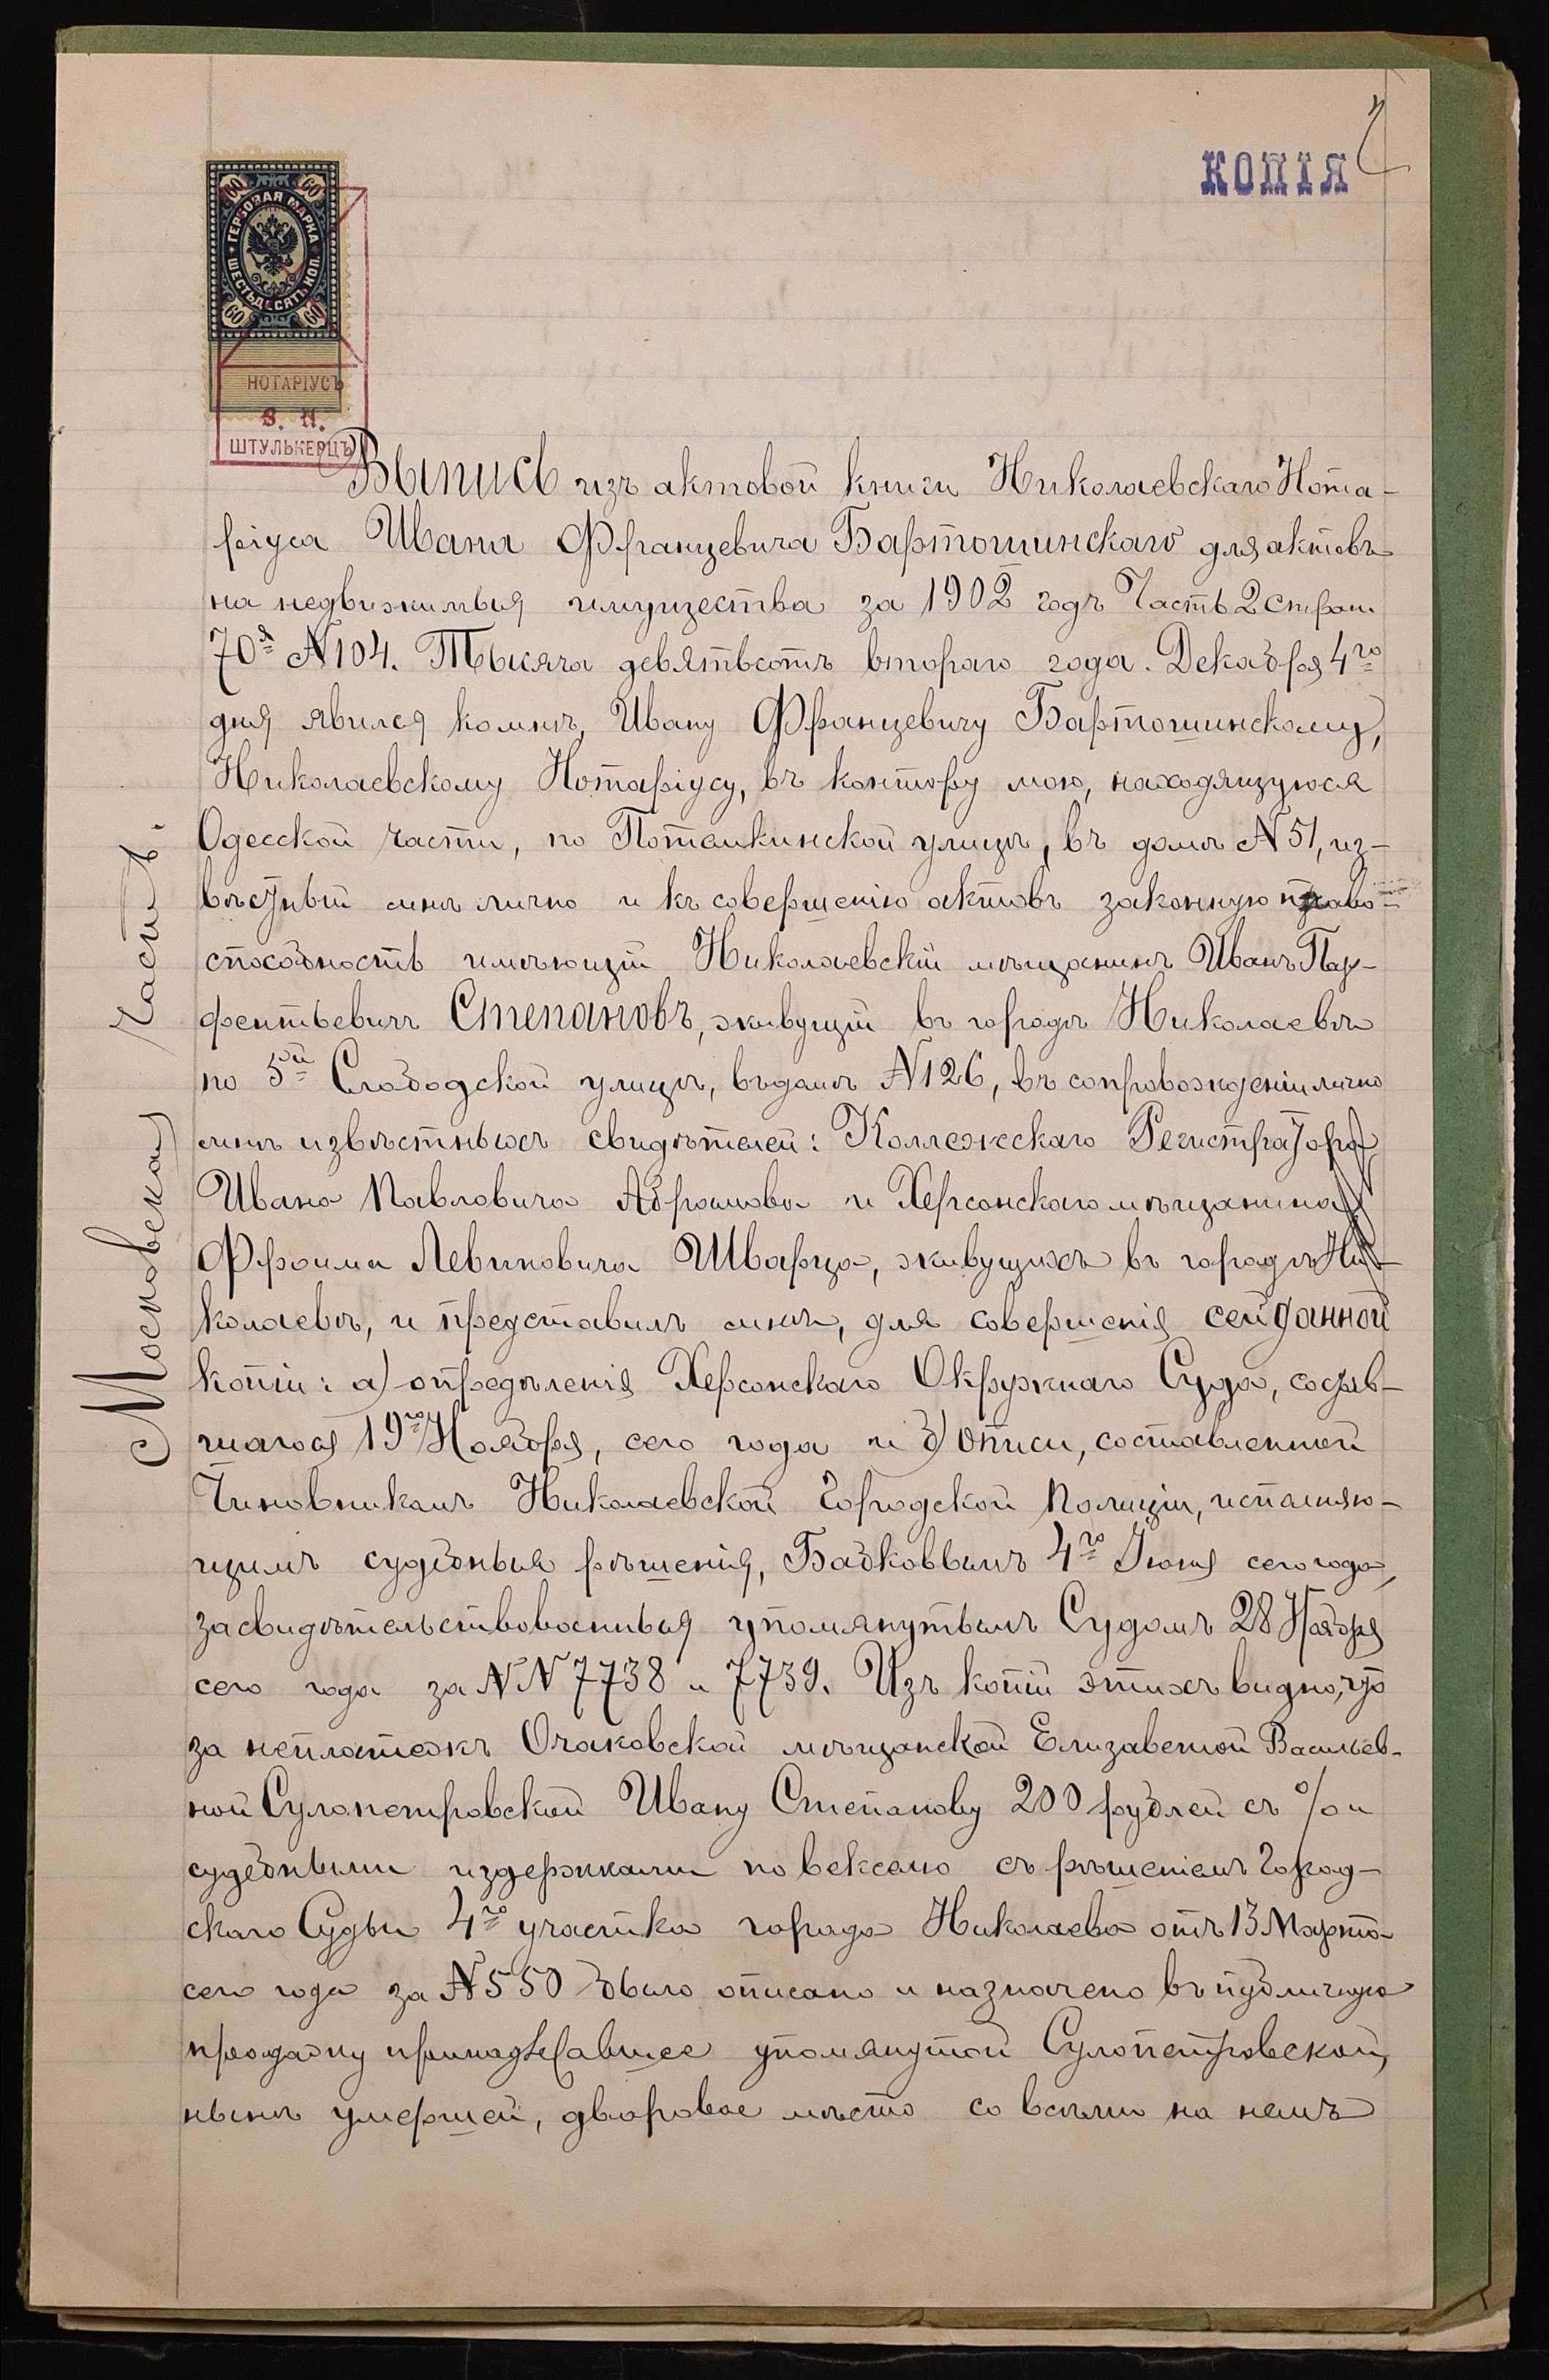 КОПІЯ
2
60 60
ГЕРБОВАЯ МАРКА
ШЕСТЬДЕСЯТЪ КОП.
60 60
НОТАРІУСЪ
ШТУЛЬКЕРЦЪ
Выпись изъ актовой книги Николаевскаго Нота-
ріуса Ивана Францевича Бартошинскаго для актовъ
на недвижимыя имущества за 1902 годъ Часть 2 стран.
70я N104. Тысяча девятьсотъ втораго года. Декабря 4го
дня явился ко мнѣ, Ивану Францевичу Бартошинскому,
Николаевскому Нотаріусу, въ контору мою, находящуюся
Одесской части, по Потемкинской улицѣ, въ домѣ N51, из-
вѣстный мнѣ лично и къ совершенію актовъ законную право-
способность имѣющій Николаевскій мѣщанинъ Иванъ Пар-
фентьевичъ Степановъ, живущій въ городѣ Николаевѣ
по 5й Слободской улицѣ, въ домѣ N126, въ сопровожденіи лично
мнѣ извѣстныхъ свидѣтелей: Коллежскаго Регистратора
Ивана Павловича Абрамова и Херсонскаго мѣщанина
Фроима Левиковича Шварца, живущихъ въ городѣ Ни-
колаевѣ, и представилъ мнѣ, для совершенія сей данной
копіи: а) опредѣленія Херсонскаго Окружнаго Суда, состояв-
шагося 19го Ноября, сего года и б) описи, составленной
Чиновникомъ Николаевской Городской Полиціи, исполняю-
щимъ судебныя рѣшенія, Бабковымъ 4го Іюня сего года,
засвидѣтельствованныя упомянутымъ Судомъ 28 Ноября
сего года за NN 7738 и 7739. Изъ копій этихъ видно, что
за неплатежъ Очаковской мѣщанской Елизаветой Васильев-
ной Сулопетровской Ивану Степанову 200 рублей съ % и
судебными издержками по векселю съ рѣшеніемъ Город-
скаго Судьи 4го участка города Николаева отъ 13 Марта
сего года за N550 было описано и назначено въ публичную
продажу принадлежавшее упомянутой Сулопетровской,
нынѣ умершей, дворовое мѣсто со всѣми на немъ
Московская часть.